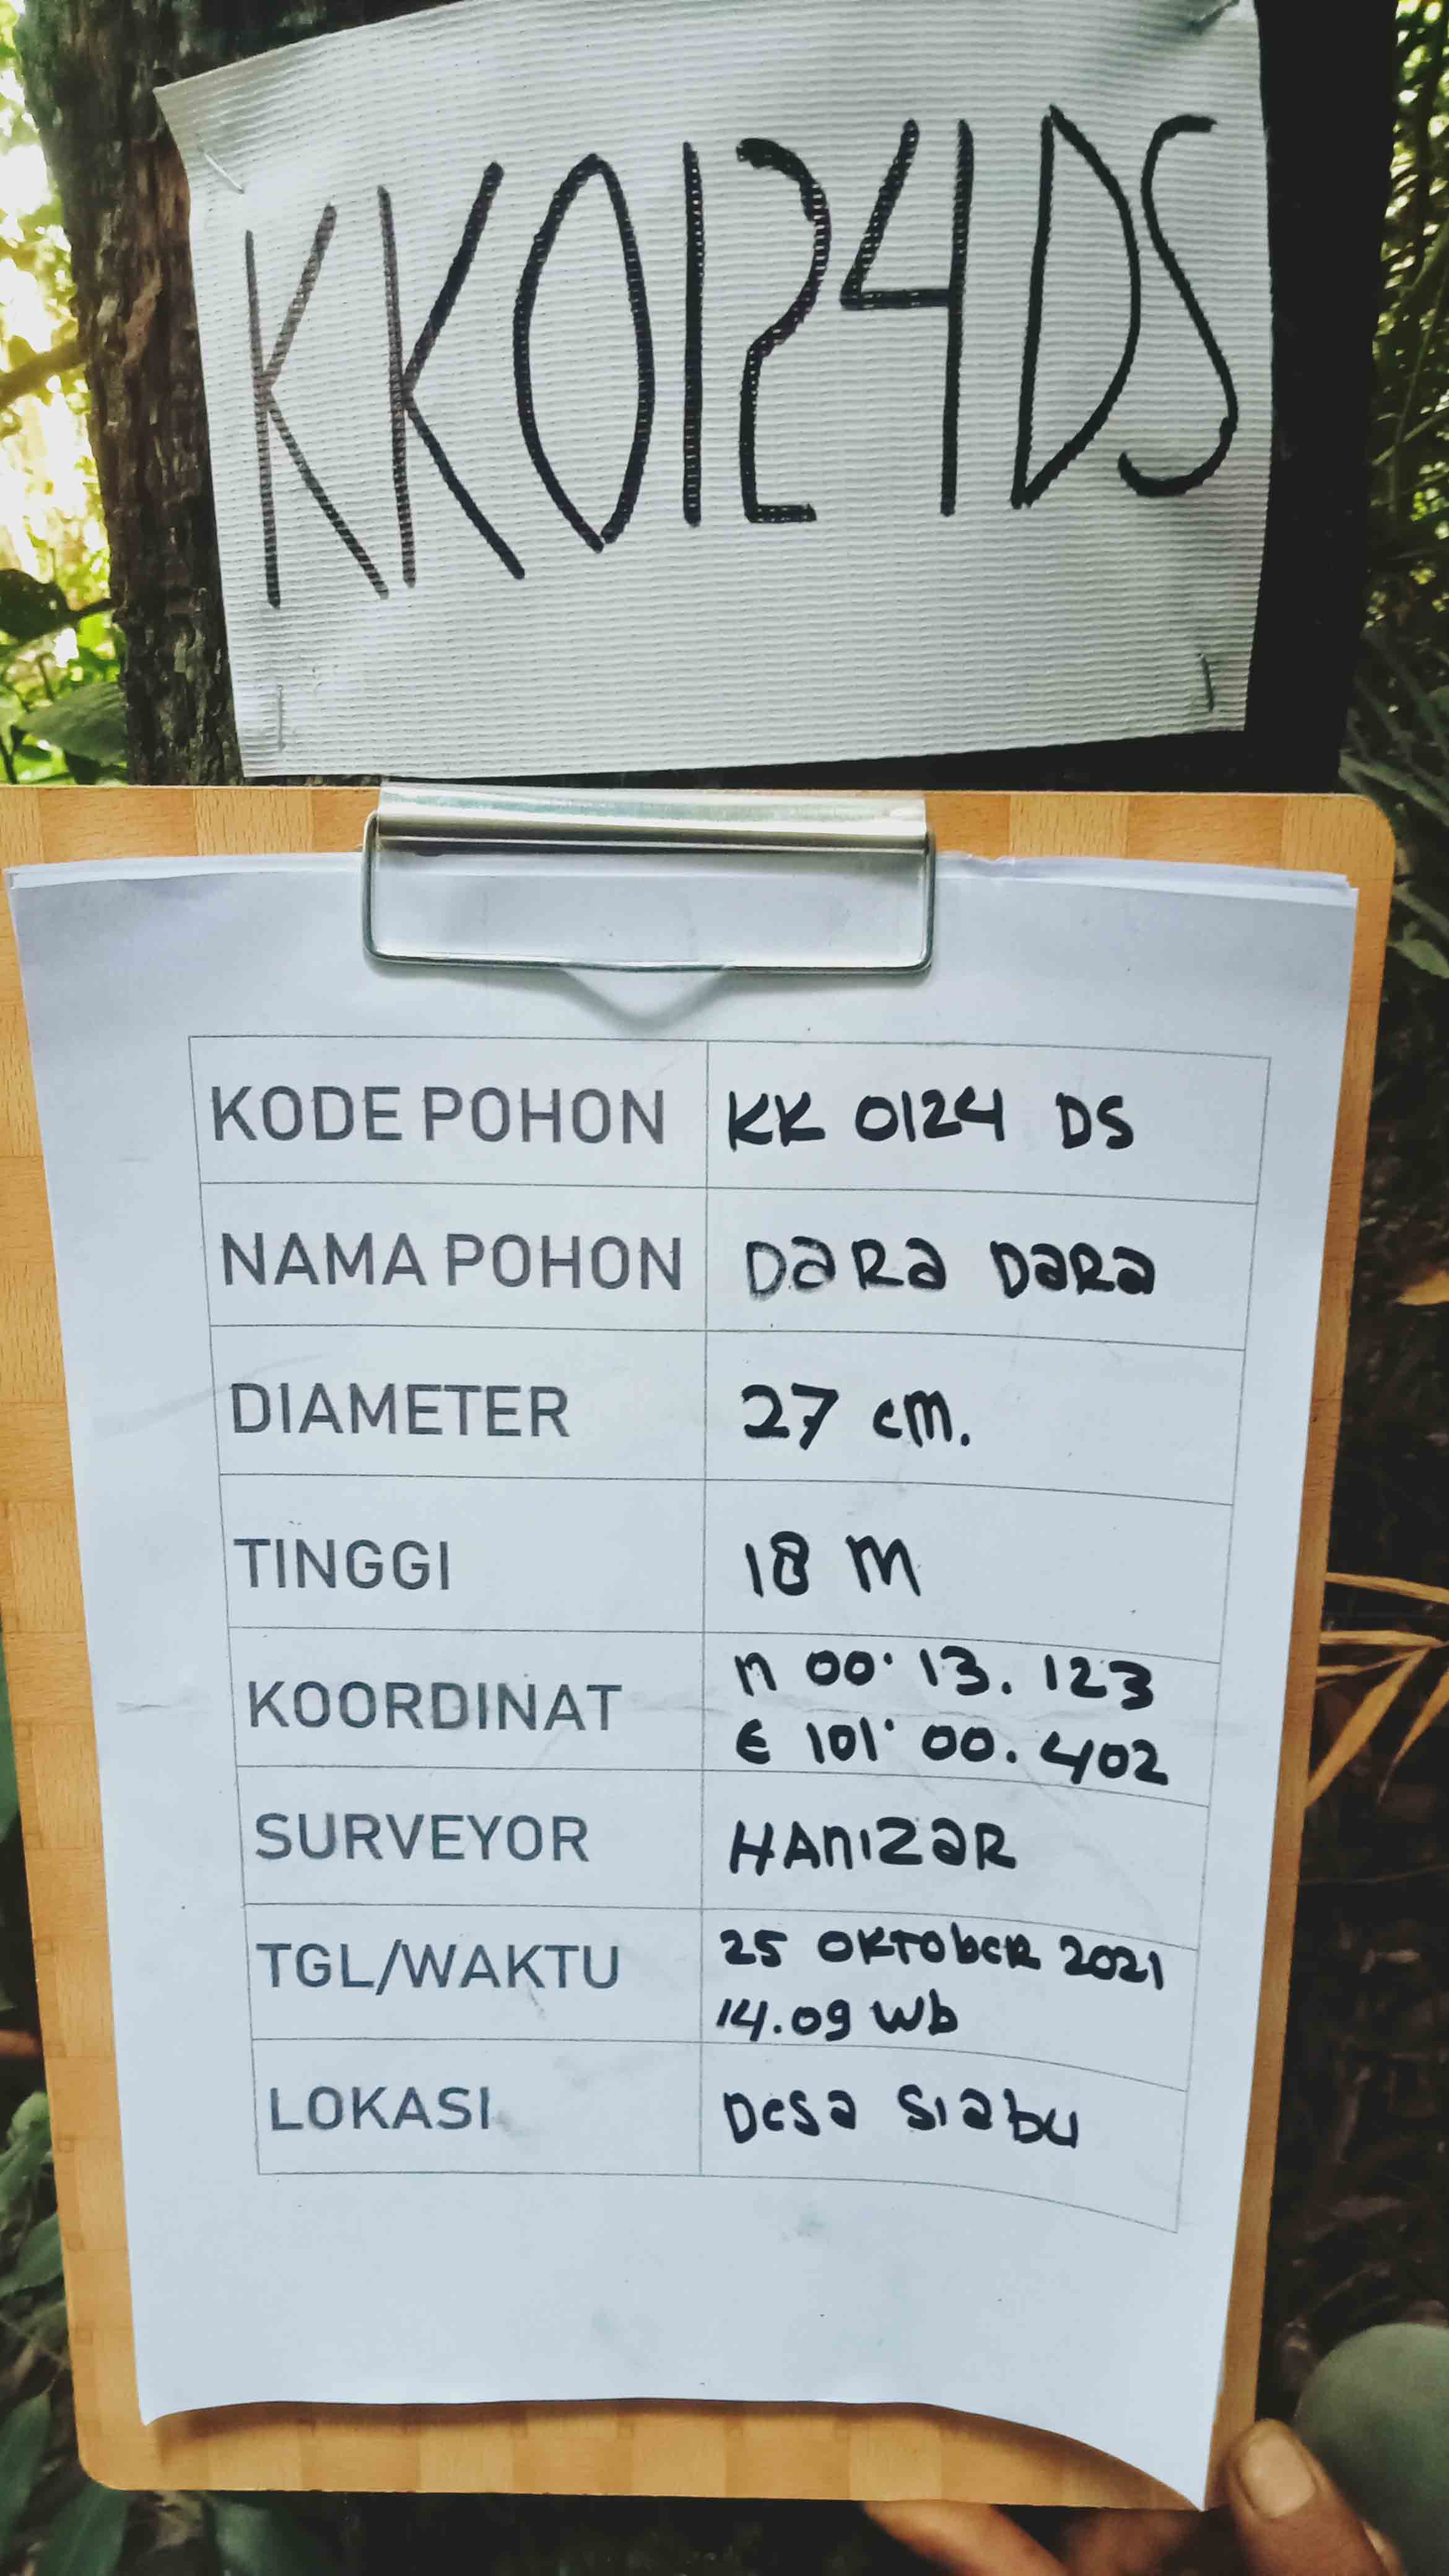 KK0124DS
KODE POHON KK 0124 DS
NAMA POHON DaRa DaRa
DIAMETER 27 cm.
TINGGI 18 M
KOORDINAT n 00° 13. 123
E 101° 00. 402
SURVEYOR HAnIZaR
TGL/WAKTU 25 OKTObeR 2021
14.09 Wb
LOKASI Desa Siabu